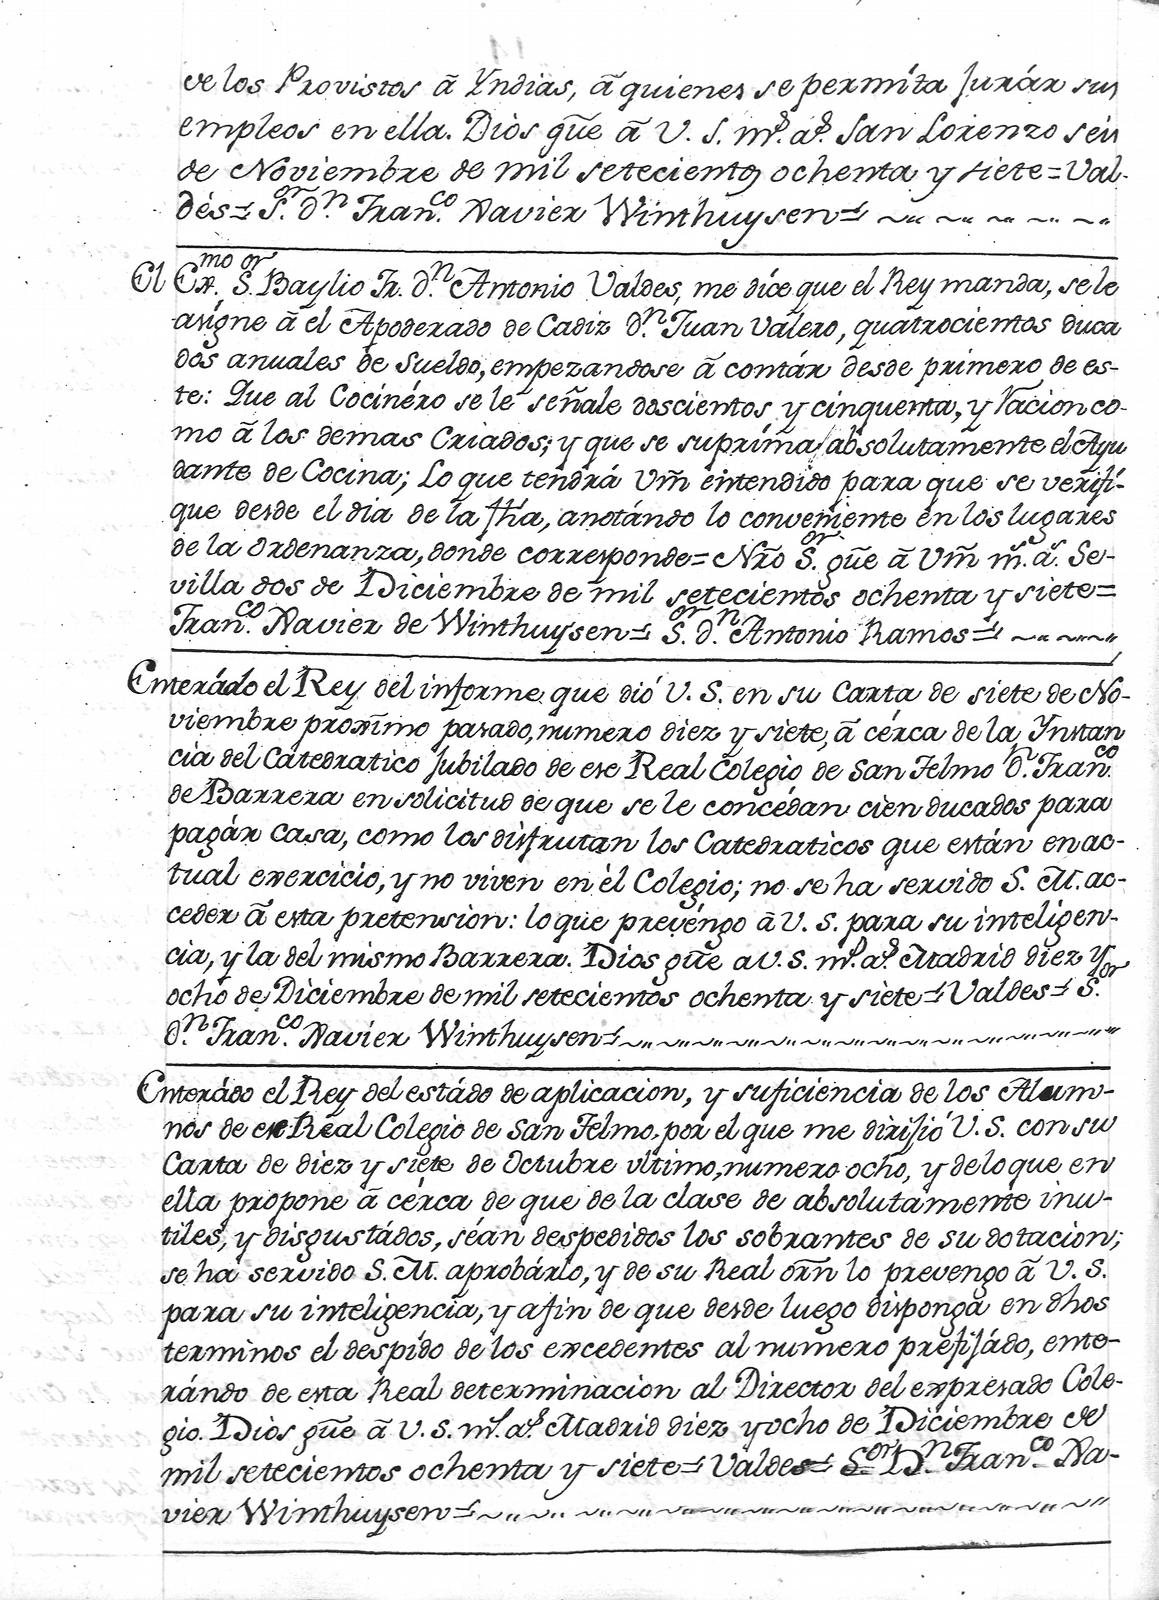 de los Provistos ā Yndias, ā quienes se permita Jurár sus
empleos en ella. Dios gūe ā V. S. m.ˢ a.ˢ San Lorenzo seis
de Noviembre de mil setecientos ochenta y siete = Val-
dés = S.ᵒʳ D.ⁿ Fran.ᶜᵒ Xavier Winthuysen =
El Ex.ᵐᵒ S.ᵒʳ Baylio Fr. D.ⁿ Antonio Valdes, me dice que el Rey manda, se le
asigne ā el Apoderado de Cadiz D.ⁿ Juan Valero, quatrocientos duca
dos anuales de Sueldo, empezandose ā contár desde primero de es-
te: Que al Cocinéro se le señale doscientos y cinquenta, y racion co-
mo ā los demas Criados; y que se suprima absolutamente el Ayu
dante de Cocina; Lo que tendrá Vm̄ entendido para que se verifi-
que desde el dia de la fh̄a, anotándo lo conveniente en los lugares
de la Ordenanza, donde corresponde = Nr̄o S.ᵒʳ gūe ā Vm̄ m.ˢ a.ˢ Se-
villa dos de Diciembre de mil setecientos ochenta y siete =
Fran.ᶜᵒ Xavier de Winthuysen = S.ᵒʳ D.ⁿ Antonio Ramos =
Enterádo el Rey del informe que dió V. S. en su Carta de siete de No-
viembre prox̄imo pasado, numero diez y siete, ā cérca de la Ynstan
cia del Catedratico Jubilado de ese Real Colegio de San Telmo D.ⁿ Fran.ᶜᵒ
de Barrera en solicitud de que se le concédan cien ducados para
pagár Casa, como los disfrutan los Catedraticos que están en ac-
tual exercicio, y no viven en él Colegio; no se ha servido S. M. ac-
ceder ā esta pretension: lo que prevéngo ā V. S. para su inteligen-
cia, y la del mismo Barrera. Dios gūe a V. S. m.ˢ a.ˢ Madrid diez y
ocho de Diciembre de mil setecientos ochenta y siete = Valdes = S.ᵒʳ
D.ⁿ Fran.ᶜᵒ Xavier Winthuysen =
Enterádo el Rey del estádo de aplicacion, y suficiencia de los Alum-
nos de ese Real Colegio de San Telmo, por el que me dirijió V. S. con su
Carta de diez y siete de Octubre vltimo, numero ocho, y de lo que en
ella propone ā cérca de que de la clase de absolutamente inu-
tiles, y disgustádos, séan despedidos los sobrantes de su dotacion;
se ha servido S. M. aprobárlo, y de su Real orn̄ lo prevengo ā V. S.
para su inteligencia, y afin de que desde luego disponga en dhos
terminos el despído de los excedentes al numero prefijádo, ente-
rándo de esta Real determinacion al Director del expresado Cole-
gio. Dios gūe ā V. S. m.ˢ a.ˢ Madrid diez y ocho de Diciembre de
mil setecientos ochenta y siete = Valdes = S.ᵒʳ D.ⁿ Fran.ᶜᵒ Xa-
vier Winthuysen =